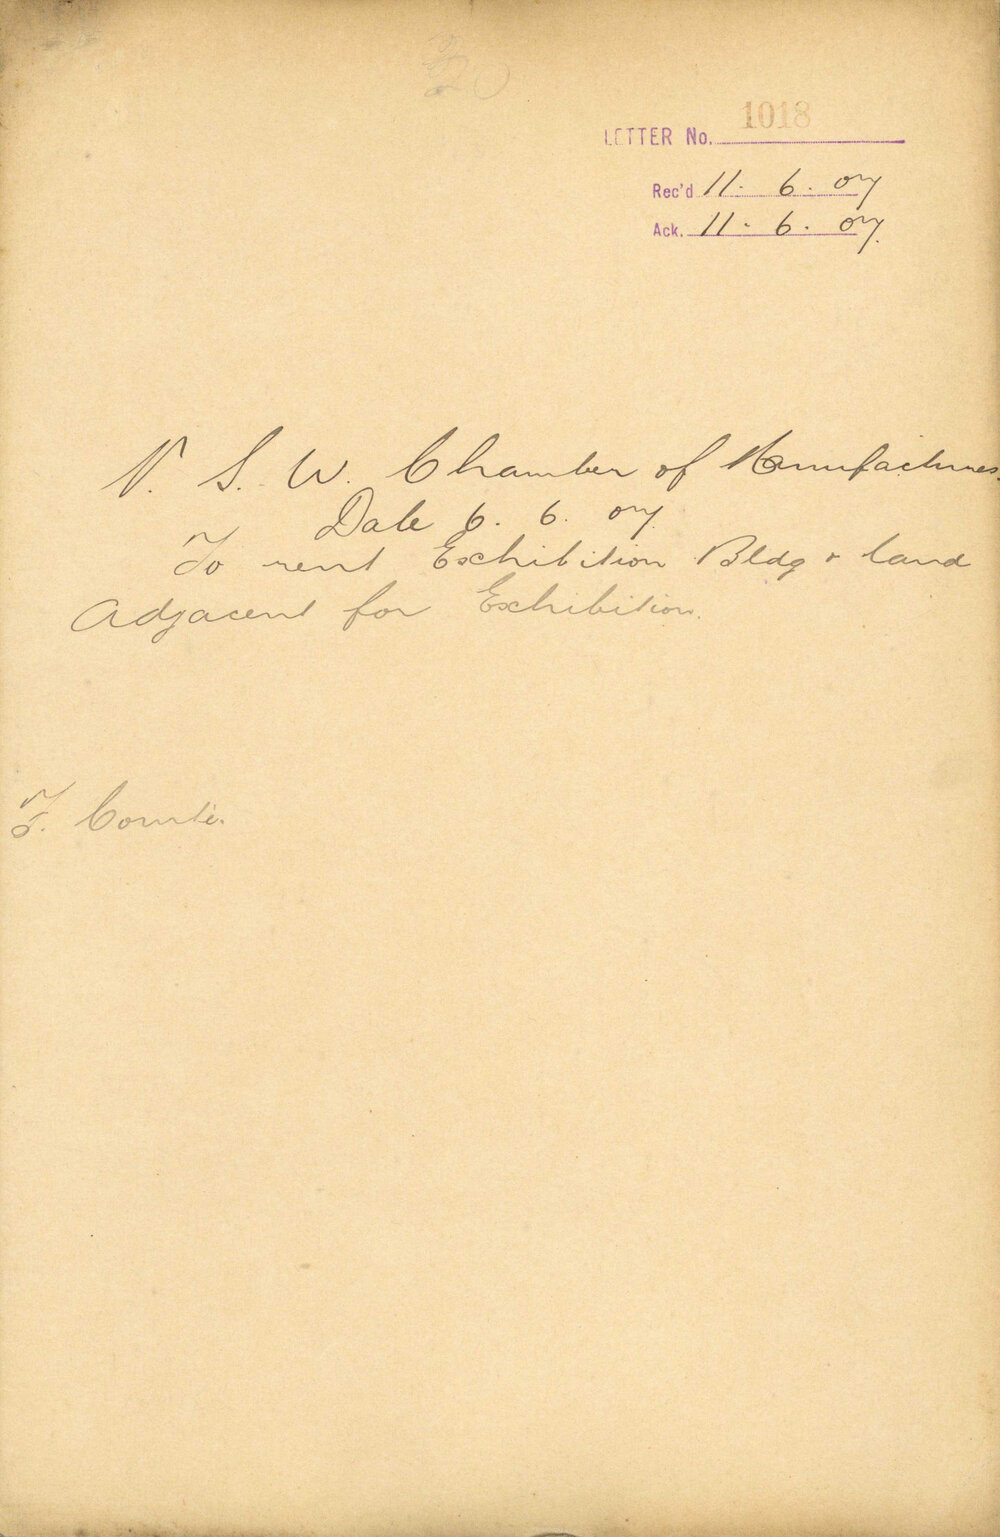 LETTER No. 1018
Rec'd 11. 6. 07
Ack. 11. 6. 07.
N. S. W. Chamber of Manufactures.
Date 6. 6. 07
To rent Exhibition Bldg & land
Adjacent for Exhibition.
F. Comtee